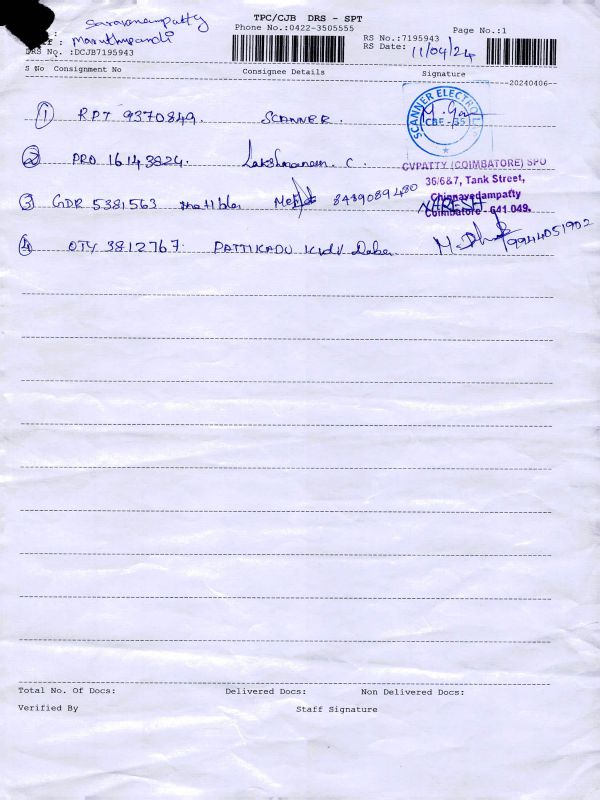 TPC/CJB DRS - SPT
Saravanampatty
Phone No.:0422-3505555
Page No.:1
: Maruthupandi
RS No.:7195943
DRS No. :DCJB7195943
RS Date: 11/04/24
S No Consignment No Consignee Details Signature
20240406
1 RPT 9370849. SCANNER.
SCANNER ELECTRO
CBE - 35
2 PRO 16143824. Lakshmanan. C.
CVPATTY (COIMBATORE) SPU
36/6&7, Tank Street,
Chinnavedampatty
Coimbatore - 641 049.
3 GDR 5381563 8489089480 NARESH
4 OTY 3812767. PATTIKADU 9944051902
Total No. Of Docs: Delivered Docs: Non Delivered Docs:
Verified By Staff Signature